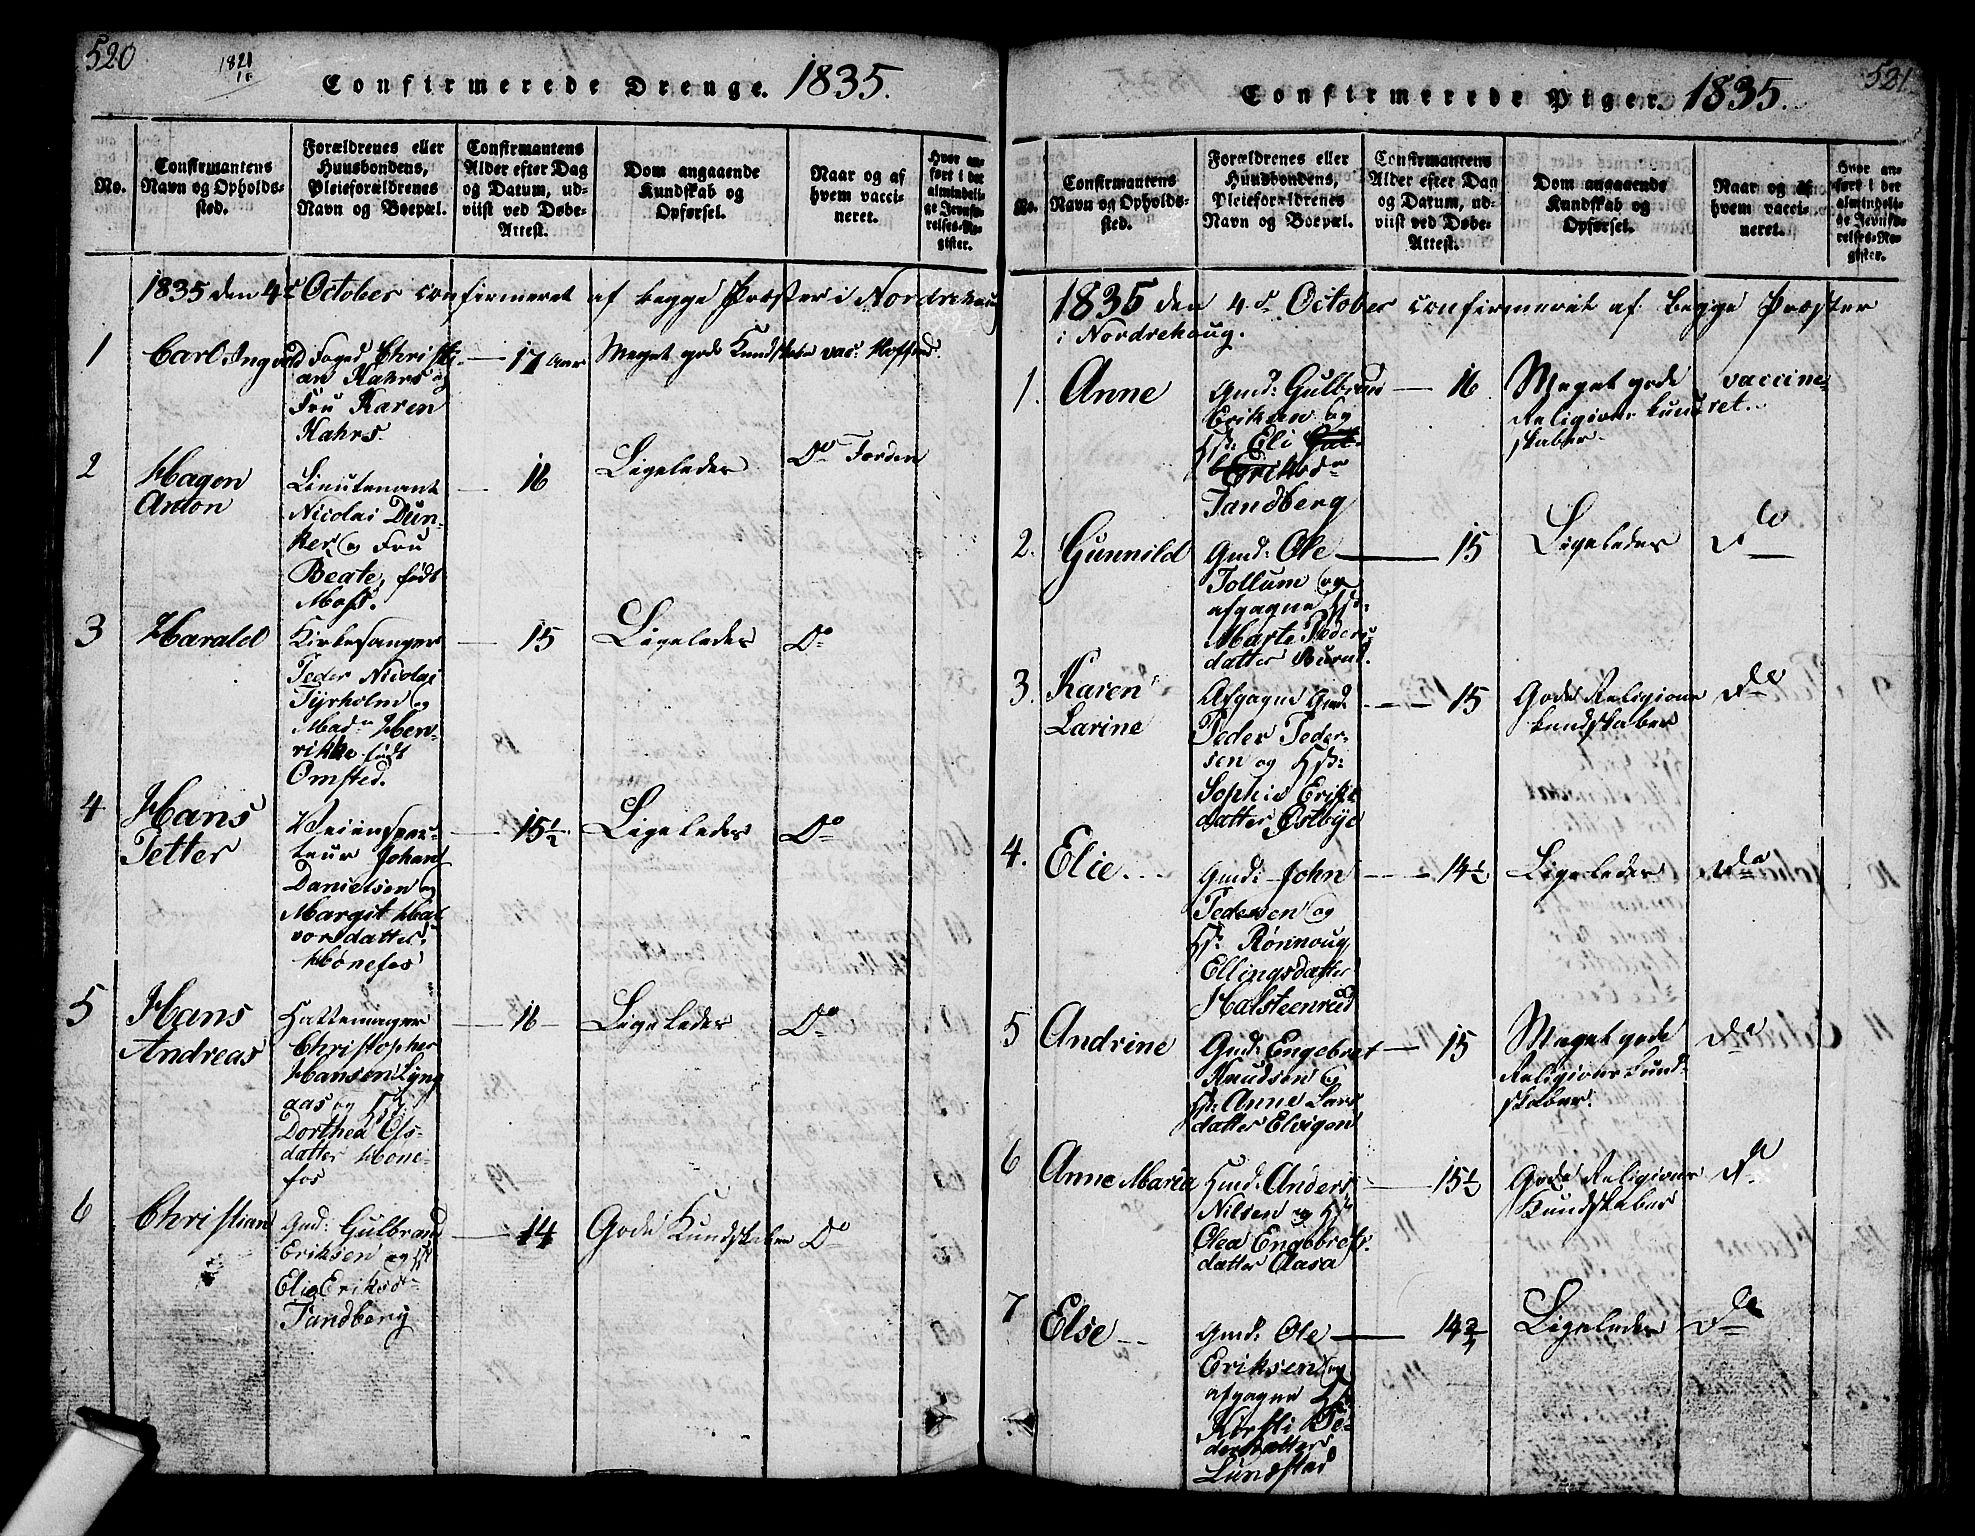 520
1821
16
Confirmerede Drenge. 1835.
No.
Confirmantens
Navn og Opholds-
sted.
Forældrenes eller
Huusbondens,
Pleieforældrenes
Navn og Boepæl.
Confirmantens
Alder efter Dag
og Datum, ud-
viist ved Døbe-
Attest.
Dom angaaende
Kundskab og
Opførsel.
Naar og af
hvem vacci-
neret.
Hvor an-
ført i det
almindeli-
ge Jevnfø-
relses-Re-
gister.
1835 den 4de October confirmeret af begge Præster i Nordrehaug
1 Carl Ingvald
Foged Christi-
an Kahrs og
Fru Karen
Kahrs.
17 Aar
Meget gode Kundskaber vac:
2 Hagen
Anton
Lieutenant
Nicolai Dun-
ker og Fru
Beate, født
Moss.
16
Ligeledes
Do
3 Harald
Kirkesanger
Peder Nicolai
Tyrholm og
Madm Hen-
rikke født
Omsted.
15
Ligeledes
Do
4 Hans
Petter
Veiinspec-
teur Johan
Danielsen og
Margit Hal-
vorsdatter,
Hønefos
15½
Ligeledes
Do
5 Hans
Andreas
Hattemager
Christopher
Hansen Lyng
aas og H:
Dorthea Ols-
datter Høne-
fos
16
Ligeledes
Do
6 Christian
Gmd: Gulbrand
Eriksen og H:
Elie Eriksdr
Tandberg
14
Gode Kundskaber
Do
521
Confirmerede Piger. 1835.
No.
Confirmantens
Navn og Opholds-
sted.
Forældrenes eller
Huusbondens,
Pleieforældrenes
Navn og Boepæl.
Confirmantens
Alder efter Dag
og Datum, ud-
viist ved Døbe-
Attest.
Dom angaaende
Kundskab og
Opførsel.
Naar og af
hvem vacci-
neret.
Hvor an-
ført i det
almindeli-
ge Jevnfø-
relses-Re-
gister.
1835 den 4de October confirmeret af begge Præster
i Nordrehoug.
1. Anne
Gmd: Gulbran
Eriksen og
H: Eli
Eriksdr
Tandberg
16
Meget gode
Religions kund
skaber.
vaccine-
ret.
2. Gunnild
Gmd: Ole
Tollum og
afgagne H:
Marte Peders
datter Burud.
15
Ligeledes
Do
3. Karen
Larine
Afgagne Gmd:
Peder Peder-
sen og H:
Sophie Eriks
datter Østbye
15
Gode Religions
kundskaber
Do
4. Elie
Gmd: John
Pedersen og
H: Rønnoug
Ellingsdatter
Halsteenrud
14½
Ligeledes
Do
5 Andrine
Gmd: Engebret
Knudsen og
H: Anne Lars
datter Elvigen
15
Meget gode
Religions kund-
skaber.
Do
6 Anne Maria
Hmd: Anders
Nilsen og H:
Olea Engebrets-
datter Aasa
15½
Gode Religions
Kundskaber
Do
7 Else
Gmd: Ole
Eriksen og
afgagne H:
Kirsti Pe-
dersdatter
Lundstad
14¾
Ligeledes
Do